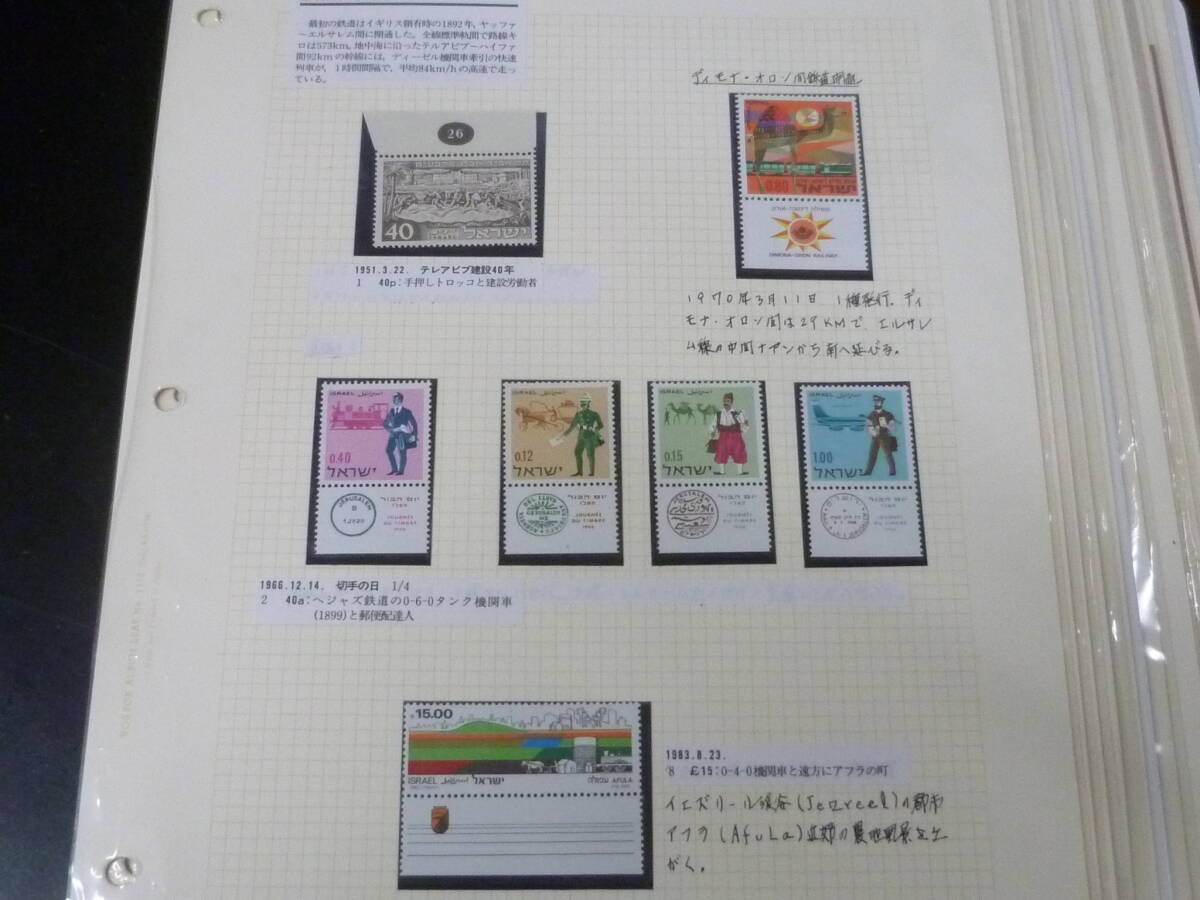 最初の鉄道はイギリス領有時の1892年, ヤッファ
ーエルサレム間に開通した。全線標準軌間で路線キ
ロは573km。地中海に沿ったテルアビブーハイファ
間92kmの幹線には, ディーゼル機関車牽引の快速
列車が, 1時間間隔で, 平均84km/hの高速で走っ
ている。
ディモナ・オロン間鉄道開通
26
40
ישראל
0.80
ישראל
DIMONA-ORON RAILWAY
1951.3.22. テレアビブ建設40年
1 40p:手押しトロッコと建設労働者
1970年3月11日 1種発行. ディ
モナ・オロン間は29KMで、エルサレ
ム線の中間ナアンから南へ延びる。
ISRAEL
0.40
ישראל
JERUSALEM
ISRAEL
0.12
ישראל
יום הבול
JOURNÉE
DU TIMBRE
1966
ISRAEL
0.15
ישראל
JERUSALEM
יום הבול
JOURNÉE
DU TIMBRE
1966
ISRAEL
1.00
ישראל
יום הבול
JOURNÉE
DU TIMBRE
1966
1966.12.14. 切手の日 1/4
2 40a:ヘジャズ鉄道の0-6-0タンク機関車
(1899)と郵便配達人
15.00
ISRAEL
ישראל
עפולה AFULA
1983.8.23.
8 £15:0-4-0機関車と遠方にアフラの町
イエズリール渓谷(Jezreel)の都市
アフラ(Afula)近郊の農地風景をえ
がく。